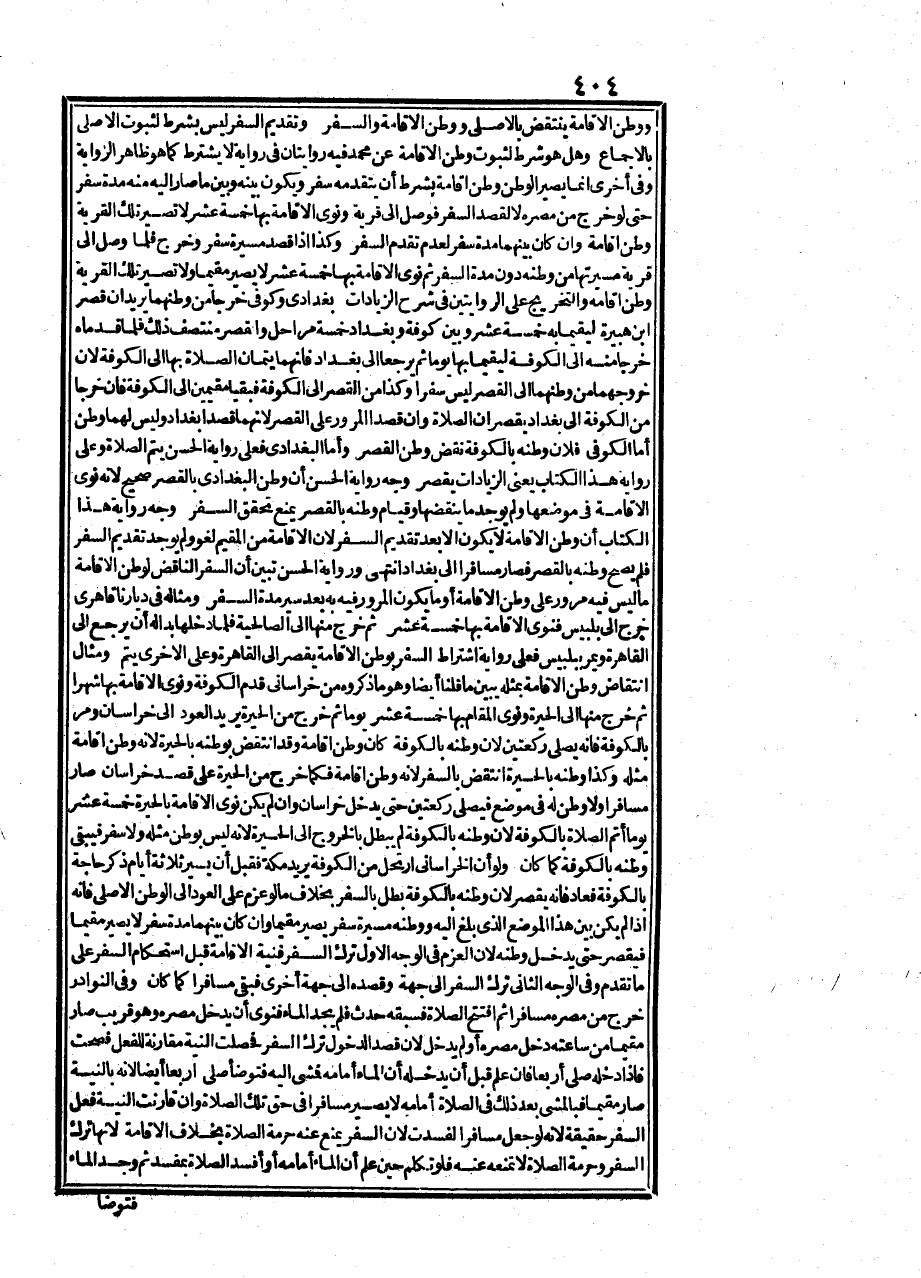 ٤٠٤
ووطن الاقامة ينتقض بالاصلى ووطن الاقامة والسفر وتقديم السفر ليس بشرط لثبوت الاصلى
بالاجماع وهل هو شرط لثبوت وطن الاقامة عن محمد فيه روايتان فى رواية لا يشترط كما هو ظاهر الرواية
وفى أخرى انما يصير الوطن وطن اقامة بشرط أن يتقدمه سفر ويكون بينه وبين ما صار اليه منه مدة سفر
حتى لو خرج من مصره لا لقصد السفر فوصل الى قرية ونوى الاقامة بها خمسة عشر لا تصير تلك القرية
وطن اقامة وان كان بينهما مدة سفر لعدم تقدم السفر وكذا اذا قصد مسيرة سفر وخرج فلما وصل الى
قرية مسيرتها من وطنه دون مدة السفر ثم نوى الاقامة بها خمسة عشر لا يصير مقيما ولا تصير تلك القرية
وطن اقامه والتخريج على الروايتين فى شرح الزيادات بغدادى وكوفى خرجا من وطنهما يريدان قصر
ابن هبيرة ليقيما به خمسة عشر وبين كوفة وبغداد خمسة مراحل والقصر منتصف ذلك فلما قدماه
خرجا منه الى الكوفة ليقيما بها يوما ثم يرجعا الى بغداد فانهما يتمان الصلاة بها الى الكوفة لان
خروجهما من وطنهما الى القصر ليس سفرا وكذا من القصر الى الكوفة فبقيا مقيمين الى الكوفة فان خرجا
من الكوفة الى بغداد يقصران الصلاة وان قصدا المرور على القصر لانهما قصدا بغداد وليس لهما وطن
أما الكوفى فلان وطنه بالكوفة نقض وطن القصر وأما البغدادى فعلى رواية الحسن يتم الصلاة وعلى
رواية هذا الكتاب يعنى الزيادات يقصر وجه رواية الحسن أن وطن البغدادى بالقصر صحيح لانه نوى
الاقامة فى موضعها ولم يوجد ما ينقضها وقيام وطنه بالقصر يمنع تحقق السفر وجه رواية هذا
الكتاب أن وطن الاقامة لا يكون الا بعد تقديم السفر لان الاقامة من المقيم لغو ولم يوجد تقديم السفر
فلم يصح وطنه بالقصر فصار مسافرا الى بغداد انتهى ورواية الحسن تبين أن السفر الناقض لوطن الاقامة
ما ليس فيه مرور على وطن الاقامة أو ما يكون المرور فيه به بعد سير مدة السفر ومثاله فى ديارنا قاهرى
خرج الى بلبيس فنوى الاقامة بها خمسة عشر ثم خرج منها الى الصالحية فلما دخلها بدا له أن يرجع الى
القاهرة ويمر ببلبيس فعلى رواية اشتراط السفر لوطن الاقامة يقصر الى القاهرة وعلى الاخرى يتم ومثال
انتقاض وطن الاقامة بمثله يبين ما قلنا أيضا وهو ما ذكروه من خراسانى قدم الكوفة ونوى الاقامة بها شهرا
ثم خرج منها الى الحيرة ونوى المقام بها خمسة عشر يوما ثم خرج من الحيرة يريد العود الى خراسان ومر
بالكوفة فانه يصلى ركعتين لان وطنه بالكوفة كان وطن اقامة وقد انتقض بوطنه بالحيرة لانه وطن اقامة
مثله وكذا وطنه بالحيرة انتقض بالسفر لانه وطن اقامة فكما خرج من الحيرة على قصد خراسان صار
مسافرا ولا وطن له فى موضع فيصلى ركعتين حتى يدخل خراسان وان لم يكن نوى الاقامة بالحيرة خمسة عشر
يوما أتم الصلاة بالكوفة لان وطنه بالكوفة لم يبطل بالخروج الى الحيرة لانه ليس بوطن مثله ولا سفر فيبقى
وطنه بالكوفة كما كان ولو أن الخراسانى ارتحل من الكوفة يريد مكة فقبل أن يسير ثلاثة أيام ذكر حاجة
بالكوفة فعاد فانه يقصر لان وطنه بالكوفة بطل بالسفر بخلاف ما لو عزم على العود الى الوطن الاصلى فانه
اذا لم يكن بين هذا الموضع الذى بلغ اليه ووطنه مسيرة سفر يصير مقيما وان كان بينهما مدة سفر لا يصير مقيما
فيقصر حتى يدخل وطنه لان العزم فى الوجه الاول ترك السفر فنية الاقامة قبل استحكام السفر على
ما تقدم وفى الوجه الثانى ترك السفر الى جهة وقصده الى جهة أخرى فبقى مسافرا كما كان وفى النوادر
خرج من مصره مسافرا ثم افتتح الصلاة فسبقه حدث فلم يجد الماء فنوى أن يدخل مصره وهو قريب صار
مقيما من ساعته دخل مصره أو لم يدخل لان قصد الدخول ترك السفر فحصلت النية مقارنة للفعل فصحت
فاذا دخله صلى أربعا فان علم قبل أن يدخله أن الماء أمامه فمشى اليه فتوضأ صلى أربعا أيضا لانه بالنية
صار مقيما فبالمشى بعد ذلك فى الصلاة أمامه لا يصير مسافرا فى حق تلك الصلاة وان قارنت النية فعل
السفر حقيقة لانه لو جعل مسافرا لفسدت لان السفر يمنع عنه حرمة الصلاة بخلاف الاقامة لانها ترك
السفر وحرمة الصلاة لا تمنعه عنه فلو تكلم حين علم أن الماء أمامه أو أفسد الصلاة بمفسد ثم وجد الماء
فتوضا